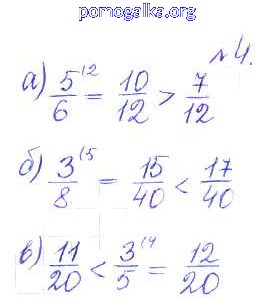 pomogalka.org
№4.
а) 5/6 (2 = 10/12 > 7/12
б) 3/8 (5 = 15/40 < 17/40
в) 11/20 < 3/5 (4 = 12/20